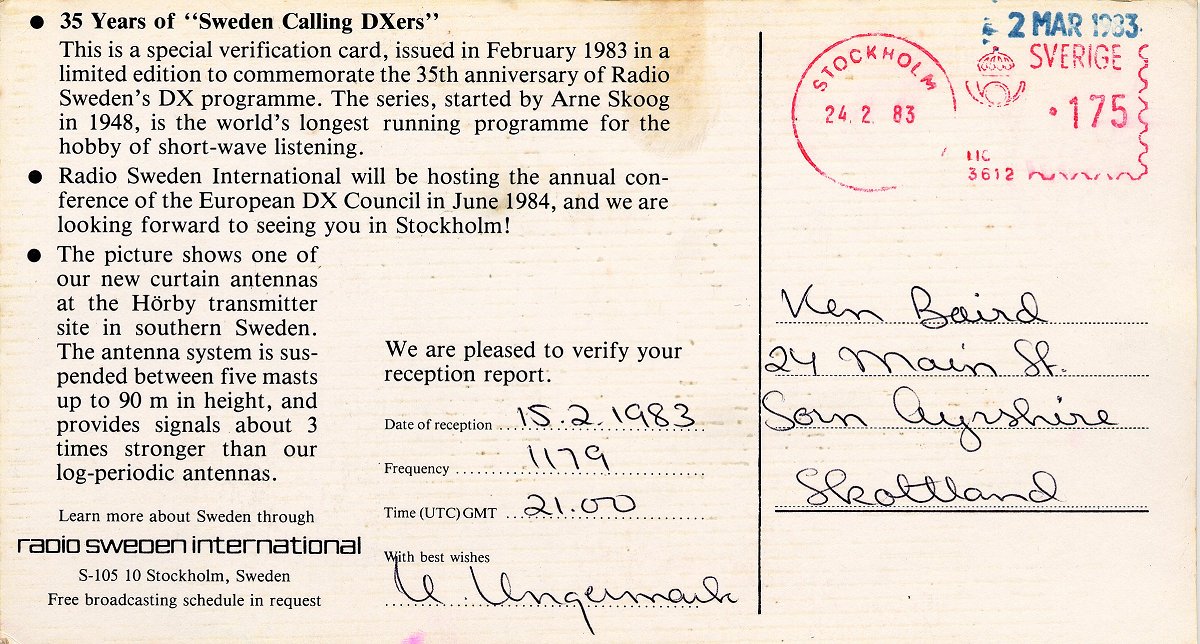 ● 35 Years of “Sweden Calling DXers”
This is a special verification card, issued in February 1983 in a
limited edition to commemorate the 35th anniversary of Radio
Sweden's DX programme. The series, started by Arne Skoog
in 1948, is the world's longest running programme for the
hobby of short-wave listening.
● Radio Sweden International will be hosting the annual con-
ference of the European DX Council in June 1984, and we are
looking forward to seeing you in Stockholm!
● The picture shows one of
our new curtain antennas
at the Hörby transmitter
site in southern Sweden.
The antenna system is sus-
pended between five masts
up to 90 m in height, and
provides signals about 3
times stronger than our
log-periodic antennas.
Learn more about Sweden through
radio sweden international
S-105 10 Stockholm, Sweden
Free broadcasting schedule in request
We are pleased to verify your
reception report.
Date of reception 15.2.1983
Frequency 1179
Time (UTC) GMT 21.00
With best wishes
U. Ungermark
2 MAR 1983
STOCKHOLM
24. 2. 83
SVERIGE
175
3612
Ken Baird
24 Main St.
Sorn Ayrshire
Skottland